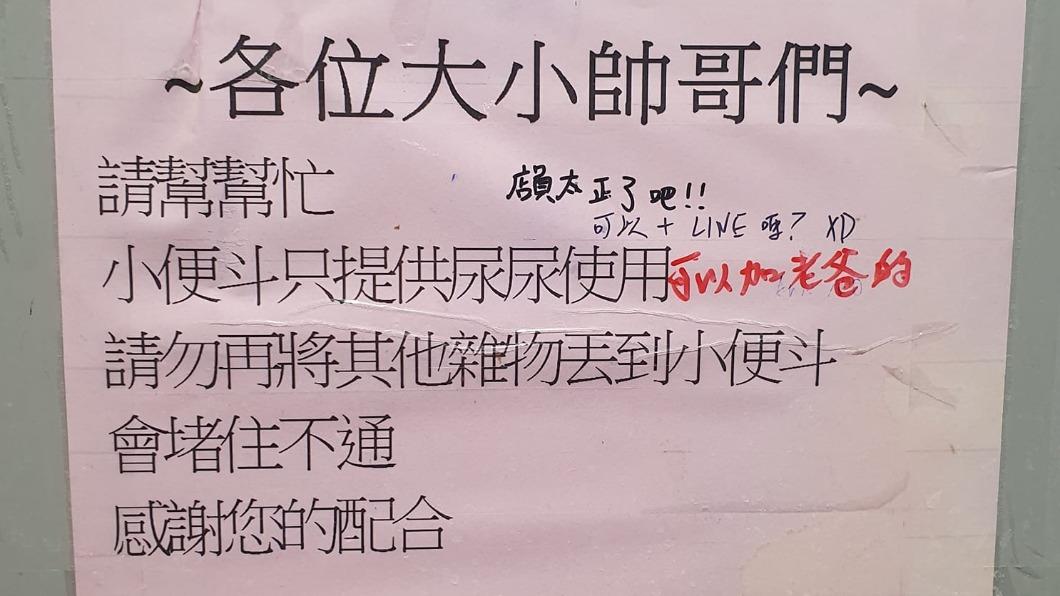 ~各位大小帥哥們~
請幫幫忙
店員太正了吧!!
可以+LINE嗎? XD
小便斗只提供尿尿使用 可以加老爸的
請勿再將其他雜物丟到小便斗
會堵住不通
感謝您的配合